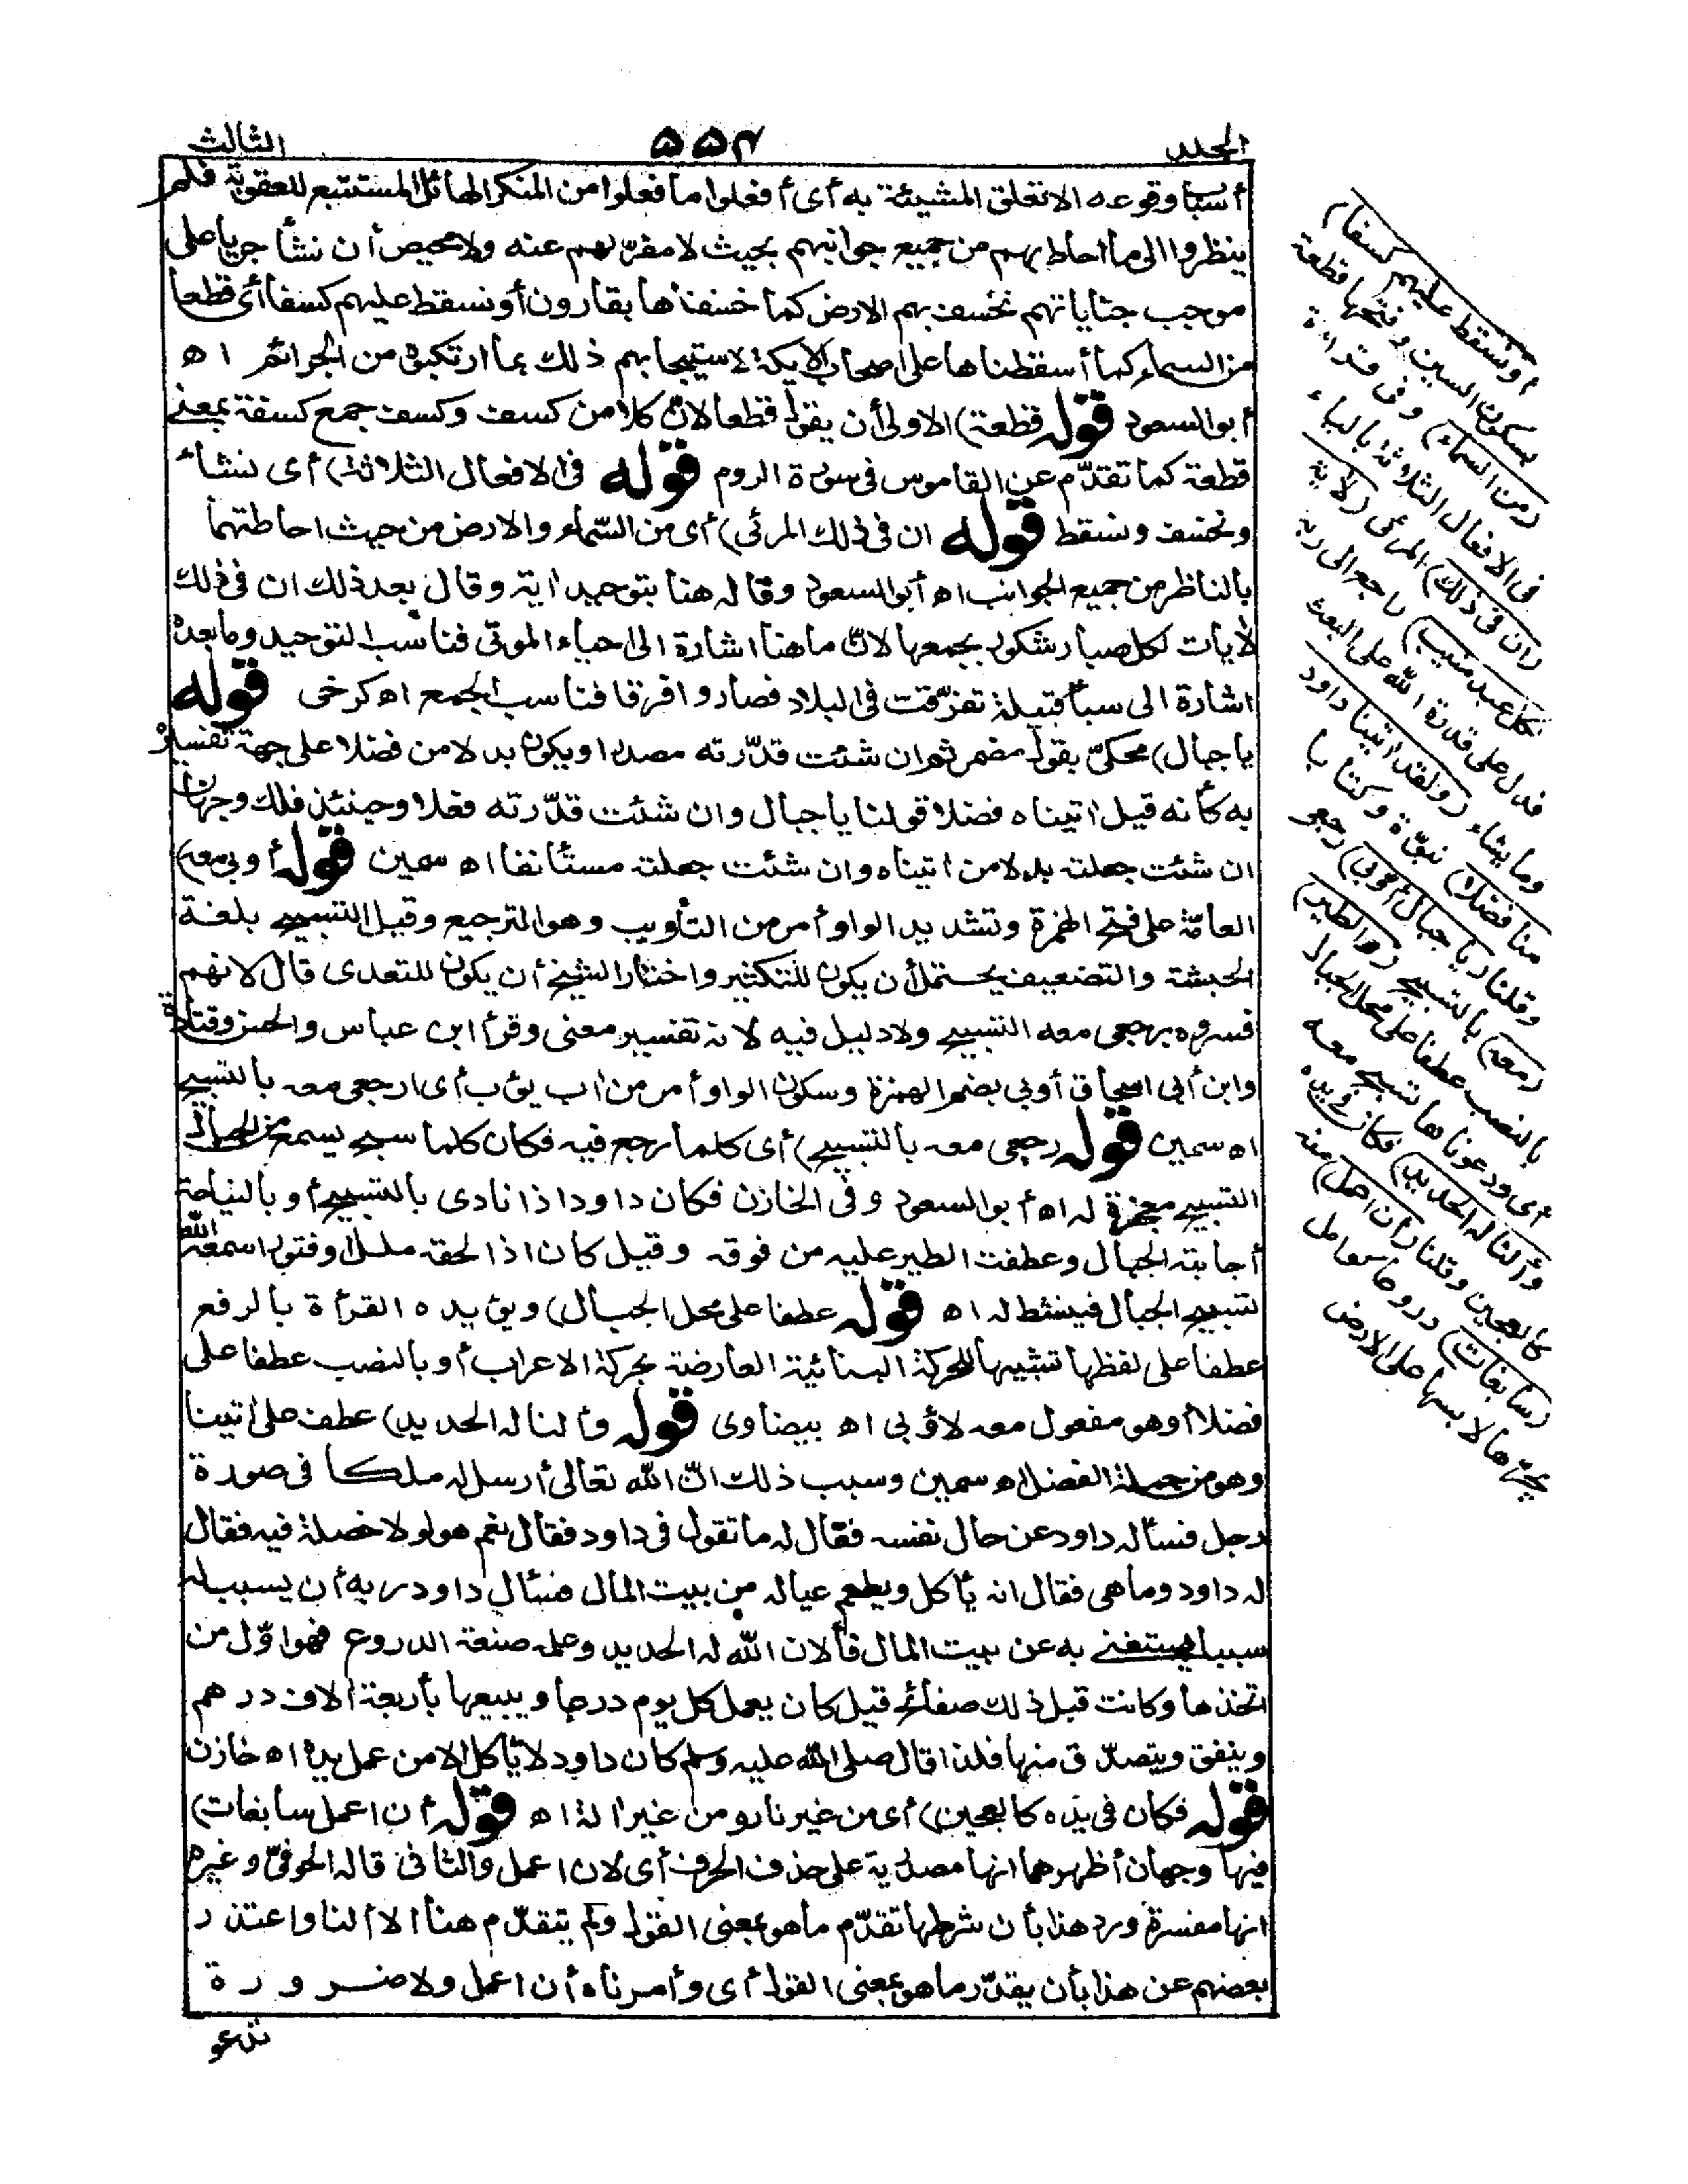 المجلد ٥٥٣ الثالث
أسباب وقوعه الا تعلق المشيئة به أى أفعلوا ما فعلوا من المنكر الهائل المستتبع للعقوبة فلم
ينظروا الى ما احاط بهم من جميع جوانبهم بحيث لا مفرّ لهم عنه ولا محيص أن نشأ جريا على
موجب جناياتهم نخسف بهم الارض كما خسفناها بقارون أو نسقط عليهم كسفا أى قطعا
من السماء كما أسقطناها على اصحاب الايكة لاستيجابهم ذلك بما ارتكبوه من الجرائم اه
أبو السعود قوله قطعة) الاولى أن يقول قطعا لانّ كلا من كسف وكسف جمع كسفة بمعنى
قطعة كما تقدّم عن القاموس فى سورة الروم قوله فى الافعال الثلاثة) أى نشأ
ونخسف ونسقط قوله ان فى ذلك المرئى) أى من السّماء والارض من حيث احاطتهما
بالناظر من جميع الجوانب اه أبو السعود وقاله هنا بتوحيد اية وقال بعد ذلك ان فى ذلك
لأيات لكل صبار شكور بجمعها لانّ ما هنا اشارة الى احياء الموتى فناسب التوحيد وما بعده
اشارة الى سبأ قبيلة تفرّقت فى البلاد فصاروا فرقا فناسب الجمع اه كرخى قوله
يا جبال) محكىّ بقول مضمر ثم ان شئت قدّرته مصدرا ويكون بدلا من فضلا على جهة تفسيره
به كأنه قيل اتيناه فضلا قولنا يا جبال وان شئت قدّرته فعلا وحينئذ فلك وجهان
ان شئت جعلته بدلا من اتيناه وان شئت جعلته مستأنفا اه سمين قوله أوبى معه)
العامّة على فتح الهمزة وتشديد الواو أمر من التأويب وهو الترجيع وقيل التسبيح بلغة
الحبشة والتضعيف يحتمل أن يكون للتكثير واختار الشيخ أن يكون للتعدى قال لانهم
فسروه برجعى معه التسبيح ولا دليل فيه لانه تفسير معنى وقرأ ابن عباس والحسن وقتادة
وابن أبى اسحاق أوبى بضم الهمزة وسكون الواو أمر من اب يؤب أى ارجعى معه بالتسبيح
اه سمين قوله رجعى معه بالتسبيح) أى كلما رجع فيه فكان كلما سبح يسمع من الجبال
التسبيح معجزة له اه أبو السعود وفى الخازن فكان داود اذا نادى بالتسبيح أو بالنياحة
أجابته الجبال وعطفت الطير عليه من فوقه وقيل كان اذا لحقه ملل أو فتور اسمعه الله
تسبيح الجبال فينشط له اه قوله عطفا على محل الجبال) ويؤيده القرأة بالرفع
عطفا على لفظها تشبيها للحركة البنائية العارضة بحركة الاعراب أو بالنصب عطفا على
فضلا أو هو مفعول معه لأوبى اه بيضاوى قوله وألنا له الحديد) عطف على اتينا
وهو من جملة الفضل اه سمين وسبب ذلك انّ الله تعالى أرسل له ملكا فى صورة
رجل فسأله داود عن حال نفسه فقال له ما تقول فى داود فقال نعم هو لولا خصلة فيه فقال
له داود وما هى فقال انه يأكل ويطعم عياله من بيت المال فسئال داود ربه أن يسبب له
سببا يستغنى به عن بيت المال فألان الله له الحديد وعلمه صنعة الدروع فهو اوّل من
اتخذها وكانت قبل ذلك صفائح قيل كان يعمل كل يوم درعا ويبيعها بأربعة ألاف درهم
وينفق ويتصدّق منها فلذا قال صلى الله عليه وسلم كان داود لا يأكل الا من عمل يده اه خازن
قوله فكان فى يده كالعجين) أى من غير نار ومن غير الة اه قوله أن اعمل سابغات)
فيها وجهان أظهرهما انها مصدرية على حذف الحرف أى لان اعمل والثانى قاله الحوفىّ وغيره
انها مفسرة ورد هذا بأن شرطها تقدّم ما هو بمعنى القول ولم يتقدّم هنا الا ألنا واعتذر
بعضهم عن هذا بأن يقدّر ما هو بمعنى القول أى وأمرناه أن اعمل ولا ضرورة
تدعو
أو نسقط عليهم كسفا)
بسكون السين وفتحها قطعة
(من السماء) وفى قراءة
فى الافعال الثلاثة بالياء
(ان فى ذلك) المرئى (لأية
لكل عبد منيب) راجع الى ربه
فدل على قدرة الله على البعث
وما يشاء (ولقد اتينا داود
منا فضلا) نبوّة وكتابا
وقلنا (يا جبال أوبى) رجعى
(معه) بالتسبيح (والطير)
بالنصب عطفا على محل الجبال
أى ودعوناها تسبح معه
(وألنا له الحديد) فكان فى يده
كالعجين وقلنا (أن اعمل) منه
(سابغات) دروعا كوامل
يجرّها لابسها على الارض